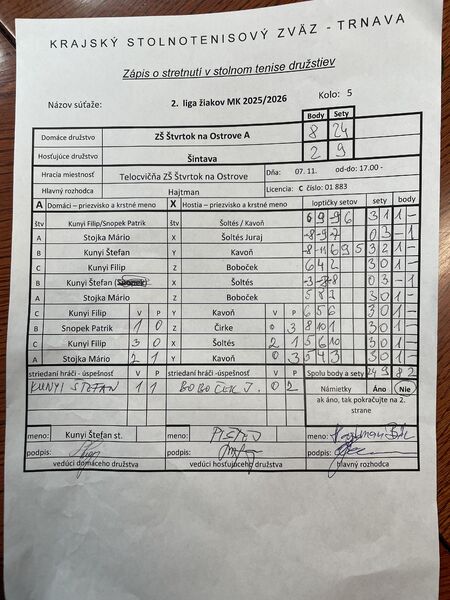 KRAJSKÝ STOLNOTENISOVÝ ZVÄZ - TRNAVA
Zápis o stretnutí v stolnom tenise družstiev
Názov súťaže: 2. liga žiakov MK 2025/2026 Kolo: 5
Body Sety
Domáce družstvo ZŠ Štvrtok na Ostrove A 8 24
Hosťujúce družstvo Šintava 2 9
Hracia miestnosť Telocvičňa ZŠ Štvrtok na Ostrove Dňa: 07. 11. od-do: 17.00 -
Hlavný rozhodca Hajtman Licencia: C číslo: 01 883
A Domáci – priezvisko a krstné meno X Hostia – priezvisko a krstné meno loptičky setov sety body
štv Kunyi Filip/Snopek Patrik štv Šoltés / Kavoň 6 9 -9 6 3 1 1 -
A Stojka Mário X Šoltés Juraj -8 -9 -7 0 3 - 1
B Kunyi Štefan Y Kavoň -8 -11 6 9 5 3 2 1 -
C Kunyi Filip Z Boboček 6 4 2 3 0 1 -
B Kunyi Štefan X Šoltés -3 -8 0 3 - 1
A Stojka Mário Z Boboček 5 8 3 0 1 -
C Kunyi Filip V P Y Kavoň V P 6 5 6 3 0 1 -
B Snopek Patrik 1 0 Z Čirke 0 3 8 10 1 3 0 1 -
C Kunyi Filip 3 0 X Šoltés 2 1 5 10 6 3 0 1 -
A Stojka Mário 2 1 Y Kavoň 0 3 5 4 3 3 0 1 -
striedaní hráči - úspešnosť striedaní hráči - úspešnosť Spolu body a sety 24 9 8 2
KUNYI ŠTEFAN 1 1 BOBOČEK J. 0 2 Námietky Áno Nie
ak áno, tak pokračujte na 2. strane
meno: Kunyi Štefan st. meno: meno:
podpis: podpis: podpis:
vedúci domáceho družstva vedúci hosťujúceho družstva hlavný rozhodca